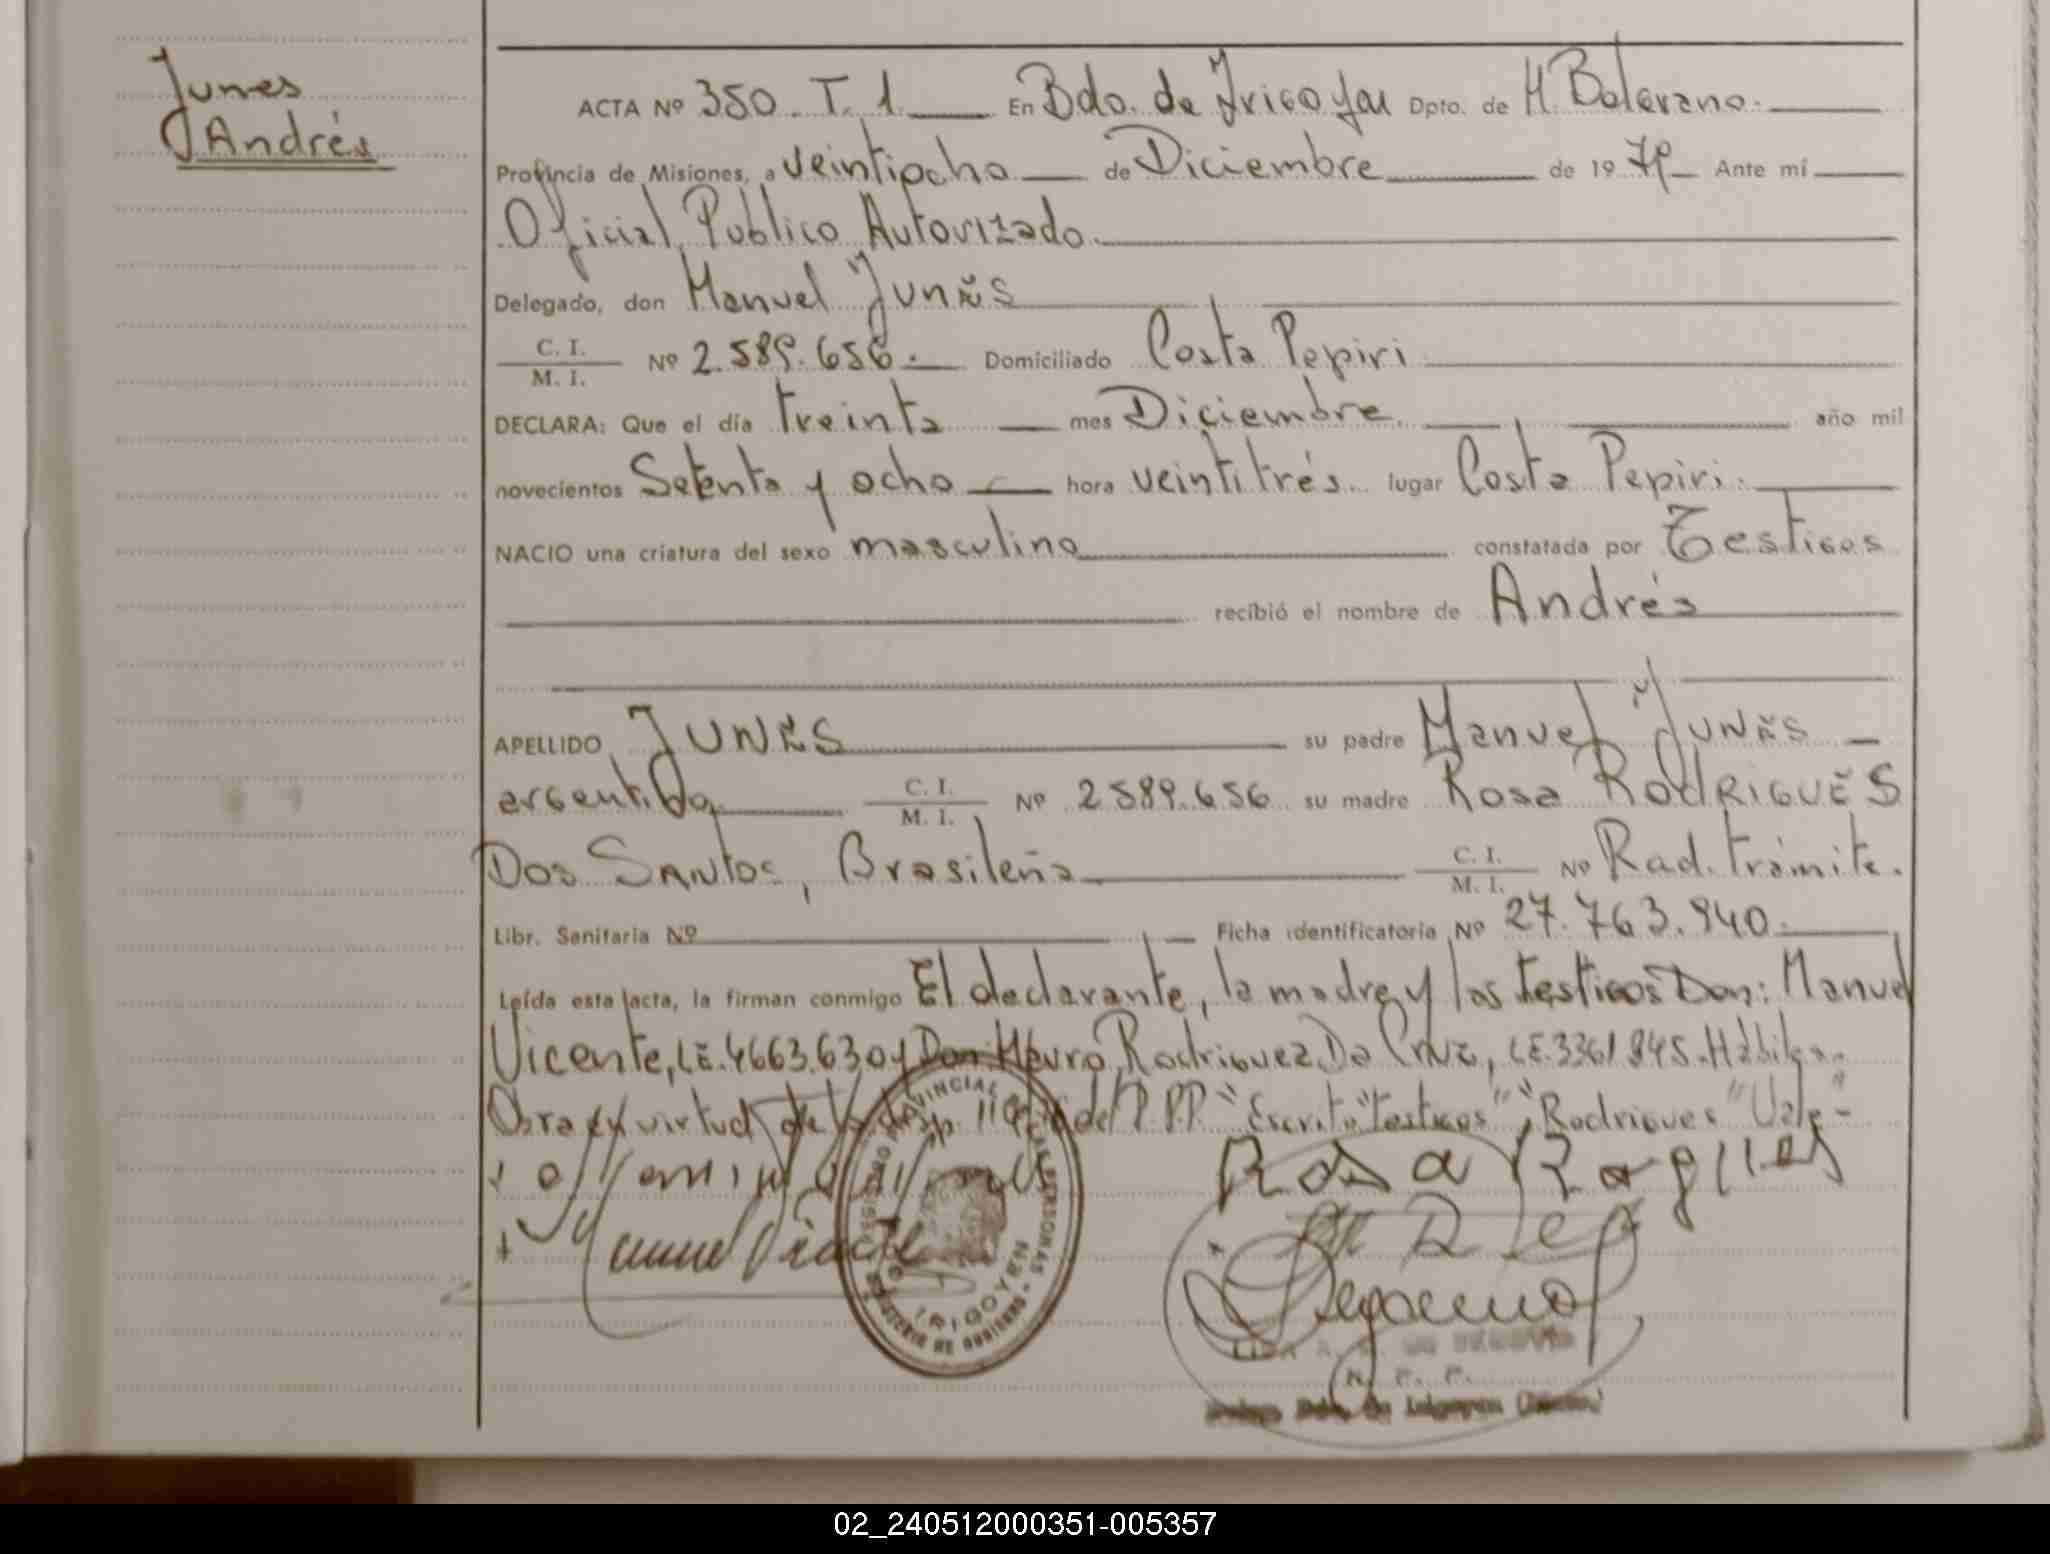 Junes
Andrés
ACTA Nº 350 T. 1 En Bdo. de Irigoyen Dpto. de M. Belgrano.
Provincia de Misiones, a veintiocho de Diciembre de 1979 Ante mí
Oficial Público Autorizado.
Delegado, don Manuel Junĕs
C. I.
M. I. Nº 2.589.656. Domiciliado Costa Pepiri
DECLARA: Que el día treinta mes Diciembre. año mil
novecientos Setenta y ocho hora veintitrés. lugar Costa Pepiri.
NACIO una criatura del sexo masculino constatada por Testigos
recibió el nombre de Andrés
APELLIDO JUNĔS su padre Manuel JUNĔS
argentino C. I.
M. I. Nº 2589.656 su madre Rosa RODRIGUĔS
Dos Santos, Brasileña C. I.
M. I. Nº Rad. trámite.
Libr. Sanitaria Nº Ficha identificatoria Nº 27.763.940.
Leída esta acta, la firman conmigo El declarante, la madre y los testigos Don: Manuel
Vicente, LE. 4663.630 y Don Mauro Rodriguez Da Cruz, LE. 3361845. Hábiles.
Obra en virtud de la del P.P.P. "Escrito" "testigos", "Rodrigues" "Vale"-
Rosa
REGISTRO PROVINCIAL DE LAS PERSONAS
IRIGOYEN
N. P. P.
02_240512000351-005357